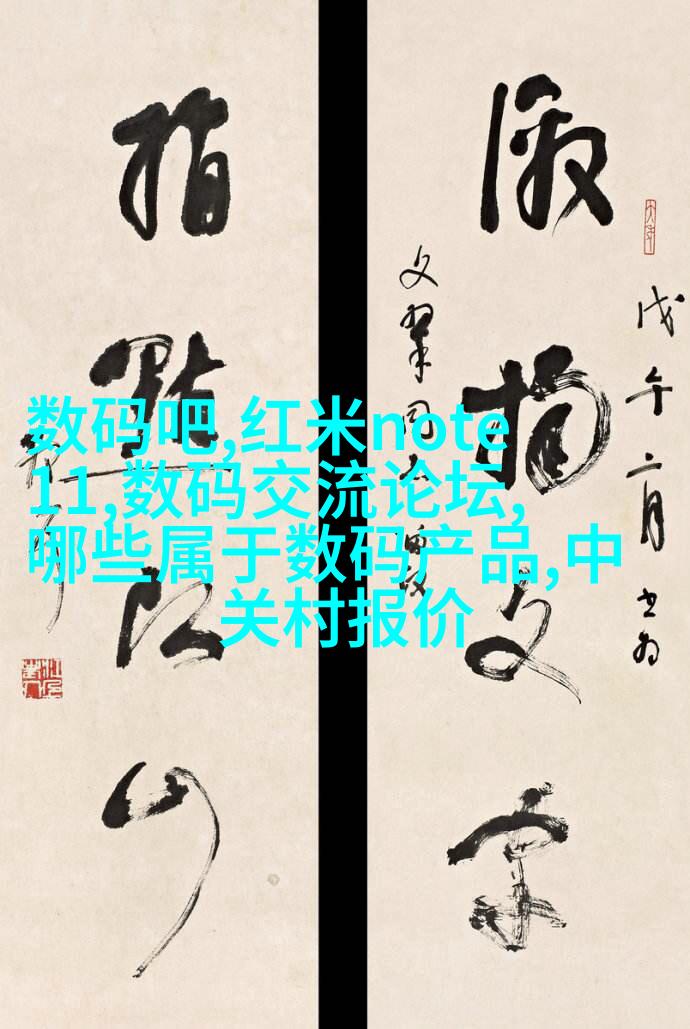 数码吧,红米note
11,数码交流论坛,
哪些属于数码产品,中
关村报价
戊午二月書為
激揚文字
文翠同志
指點江山